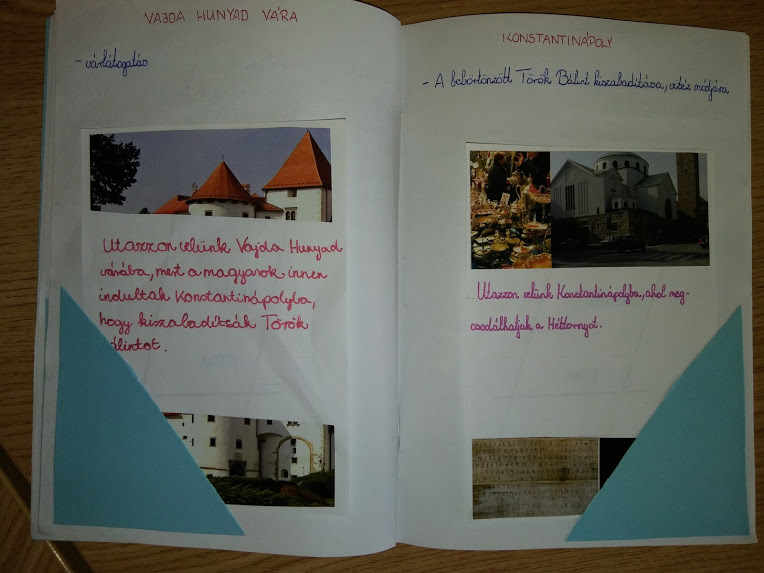 VAJDA HUNYAD VÁRA
- várlátogatás
Utazzon velünk Vajda Hunyad
várába, mert a magyarok innen
indultak Konstantinápolyba,
hogy kiszabadítsák Török
álintot.
KONSTANTINÁPOLY
- A bebörtönzött Török Bálint kiszabadítása, vitéz módjára
Utazzon velünk Konstantinápolyba, ahol meg-
csodálhatjuk a Héttornyot.